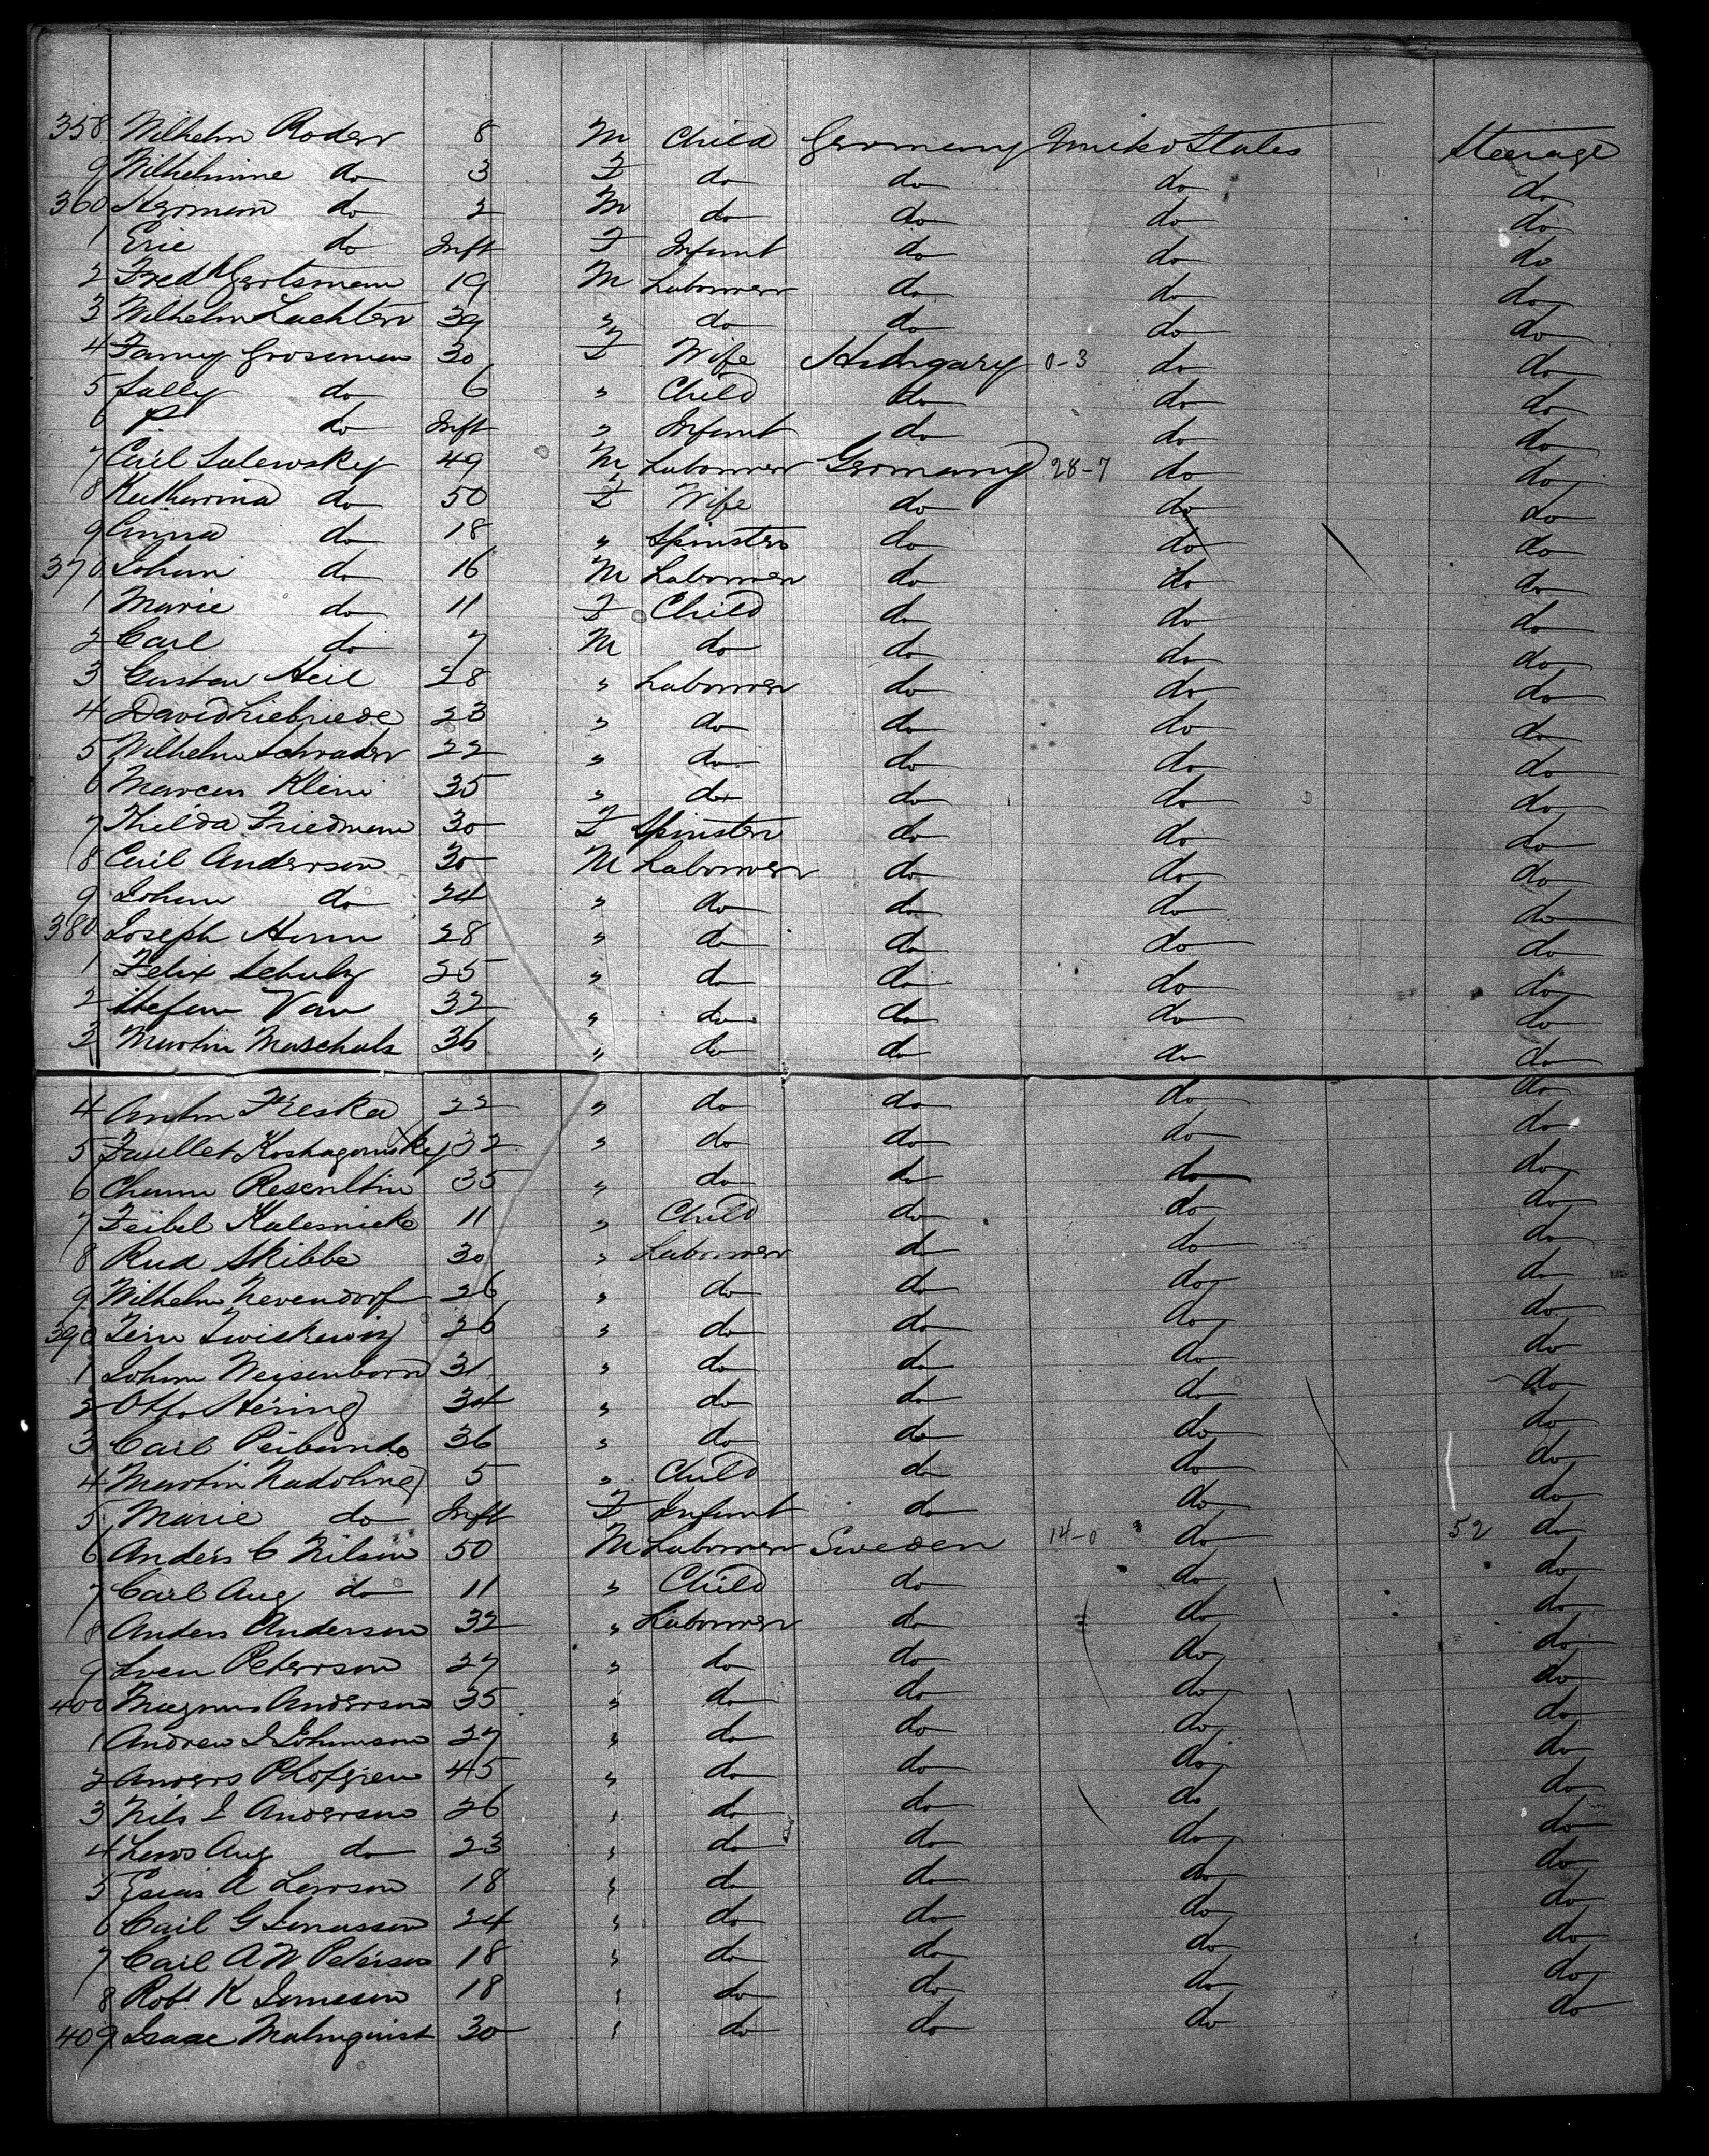 358 Wilhelm Roder 8 M Child Germany United States Steerage
9 Wilhelmine do 3 F do do do do
360 Herman do 2 M do do do do
1 Eric do Inft F Infant do do do
2 Fredk Gertsman 19 M Labourer do do do
3 Wilhelm Lachter 39 " do do do do
4 Fanny Grosman 30 F Wife Hungary 0-3 do do
5 Sally do 6 " Child do do do
6 P. do Inft " Infant do do do
7 Carl Salewsky 49 M Labourer Germany 28-7 do do
8 Katherina do 50 F Wife do do do
9 Anna do 18 " Spinster do do do
370 Johan do 16 M Labourer do do do
1 Marie do 11 F Child do do do
2 Carl do 7 M do do do do
3 Gustav Heil 28 " Labourer do do do
4 David Liebriede 23 " do do do do
5 Wilhelm Schrader 22 " do do do do
6 Marcus Klein 35 " do do do do
7 Thilda Friedman 30 F Spinster do do do
8 Carl Anderson 30 M Labourer do do do
9 Johan do 24 " do do do do
380 Joseph 28 " do do do do
1 Felix Schulz 25 " do do do do
2 Stefan Van 32 " do do do do
3 Martin Maschulz 36 " do do do do
4 Anton Fieska 22 " do do do do
5 32 " do do do do
6 35 " do do do do
7 Feibel Kalesnick 11 " Child do do do
8 Rud Skibbe 30 " Labourer do do do
9 Wilhelm Nevendorf 26 " do do do do
390 26 " do do do do
1 Johan Weisenborn 31 " do do do do
2 Otto Hering 34 " do do do do
3 Carl 36 " do do do do
4 Martin Nadolney 5 " Child do do do
5 Marie do Inft F Infant do do do
6 Anders C Nilson 50 M Labourer Sweden 14-0 do 52 do
7 Carl Aug do 11 " Child do do do
8 Anders Anderson 32 " Labourer do do do
9 Sven Peterson 27 " do do do do
400 Magnus Anderson 35 " do do do do
1 Andrew J Johanson 27 " do do do do
2 Anders P Lofgren 45 " do do do do
3 Nils J Anderson 26 " do do do do
4 Lars Aug do 23 " do do do do
5 Esias A Larson 18 " do do do do
6 Carl G Jonasson 24 " do do do do
7 Carl A W Peterson 18 " do do do do
8 Robt K Jameson 18 " do do do do
409 Isaac Malmquist 30 " do do do do